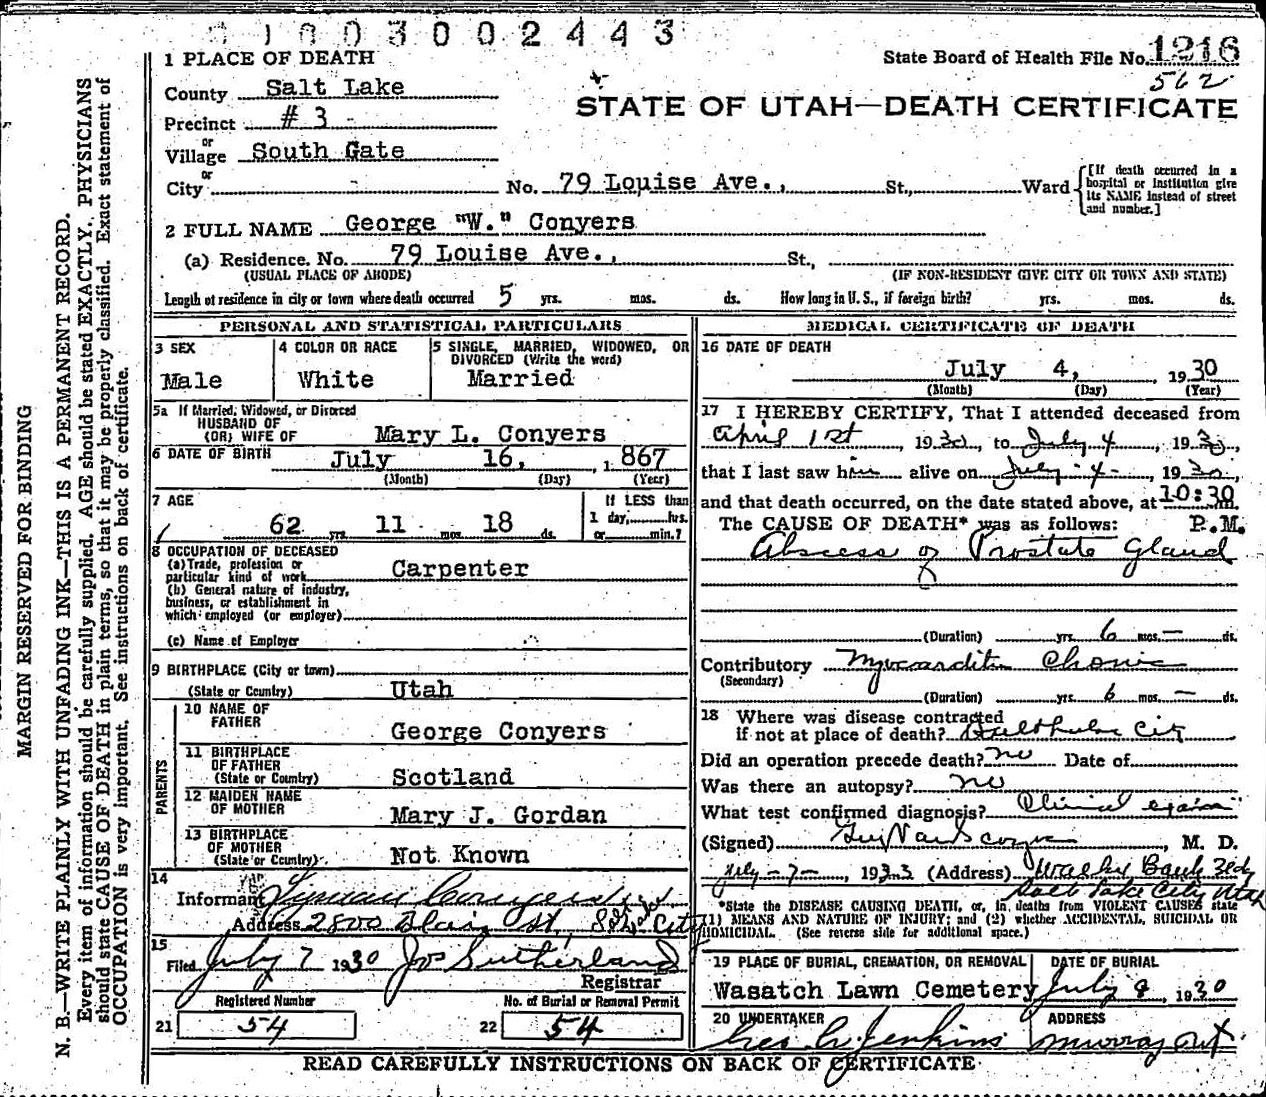 1003002443
1 PLACE OF DEATH
State Board of Health File No. 1216
562
County Salt Lake
STATE OF UTAH—DEATH CERTIFICATE
Precinct # 3
or
Village South Gate
or
City No. 79 Louise Ave., St., Ward
[If death occurred in a hospital or institution give its NAME instead of street and number.]
2 FULL NAME George "W." Conyers
(a) Residence. No. 79 Louise Ave., St.,
(USUAL PLACE OF ABODE) (IF NON-RESIDENT GIVE CITY OR TOWN AND STATE)
Length of residence in city or town where death occurred 5 yrs. mos. ds. How long in U. S., if foreign birth? yrs. mos. ds.
PERSONAL AND STATISTICAL PARTICULARS
3 SEX
Male
4 COLOR OR RACE
White
5 SINGLE, MARRIED, WIDOWED, OR DIVORCED (Write the word)
Married
5a If Married, Widowed, or Divorced
HUSBAND OF
(OR) WIFE OF Mary L. Conyers
6 DATE OF BIRTH July 16, 1867
(Month) (Day) (Year)
7 AGE
62 yrs. 11 mos. 18 ds.
If LESS than
1 day, hrs.
or min.?
8 OCCUPATION OF DECEASED
(a) Trade, profession or
particular kind of work Carpenter
(b) General nature of industry,
business, or establishment in
which employed (or employer)
(c) Name of Employer
9 BIRTHPLACE (City or town)
(State or Country) Utah
PARENTS
10 NAME OF
FATHER George Conyers
11 BIRTHPLACE
OF FATHER
(State or Country) Scotland
12 MAIDEN NAME
OF MOTHER Mary J. Gordan
13 BIRTHPLACE
OF MOTHER
(State or Country) Not Known
14
Informant Lyman Conyers
Address 2800 Blair St, City
15
Filed July 7 1930 Jos Sutherland
Registrar
Registered Number
21 54
No. of Burial or Removal Permit
22 54
MEDICAL CERTIFICATE OF DEATH
16 DATE OF DEATH
July 4, 1930
(Month) (Day) (Year)
17 I HEREBY CERTIFY, That I attended deceased from
April 1st, 1930 to July 4, 1930,
that I last saw him alive on July 4- 1930,
and that death occurred, on the date stated above, at 10:30 m.
The CAUSE OF DEATH* was as follows: P.M.
Abscess of Prostate Gland
(Duration) yrs. 6 mos. — ds.
Contributory Myocarditis Chonic
(Secondary)
(Duration) yrs. 6 mos. — ds.
18 Where was disease contracted
if not at place of death? Salt Lake City
Did an operation precede death? no Date of
Was there an autopsy? no
What test confirmed diagnosis? Clinical exam
(Signed) , M. D.
July-7-, 1933 (Address) Walker Bank Bldg
Salt Lake City Utah
*State the DISEASE CAUSING DEATH, or, in deaths from VIOLENT CAUSES state
(1) MEANS AND NATURE OF INJURY; and (2) whether ACCIDENTAL, SUICIDAL OR
HOMICIDAL. (See reverse side for additional space.)
19 PLACE OF BURIAL, CREMATION, OR REMOVAL
Wasatch Lawn Cemetery
DATE OF BURIAL
July 8, 1930
20 UNDERTAKER
Geo Jenkins
ADDRESS
Murray Ut
READ CAREFULLY INSTRUCTIONS ON BACK OF CERTIFICATE
MARGIN RESERVED FOR BINDING
N. B.—WRITE PLAINLY WITH UNFADING INK—THIS IS A PERMANENT RECORD.
Every item of information should be carefully supplied. AGE should be stated EXACTLY. PHYSICIANS
should state CAUSE OF DEATH in plain terms, so that it may be properly classified. Exact statement of
OCCUPATION is very important. See instructions on back of certificate.